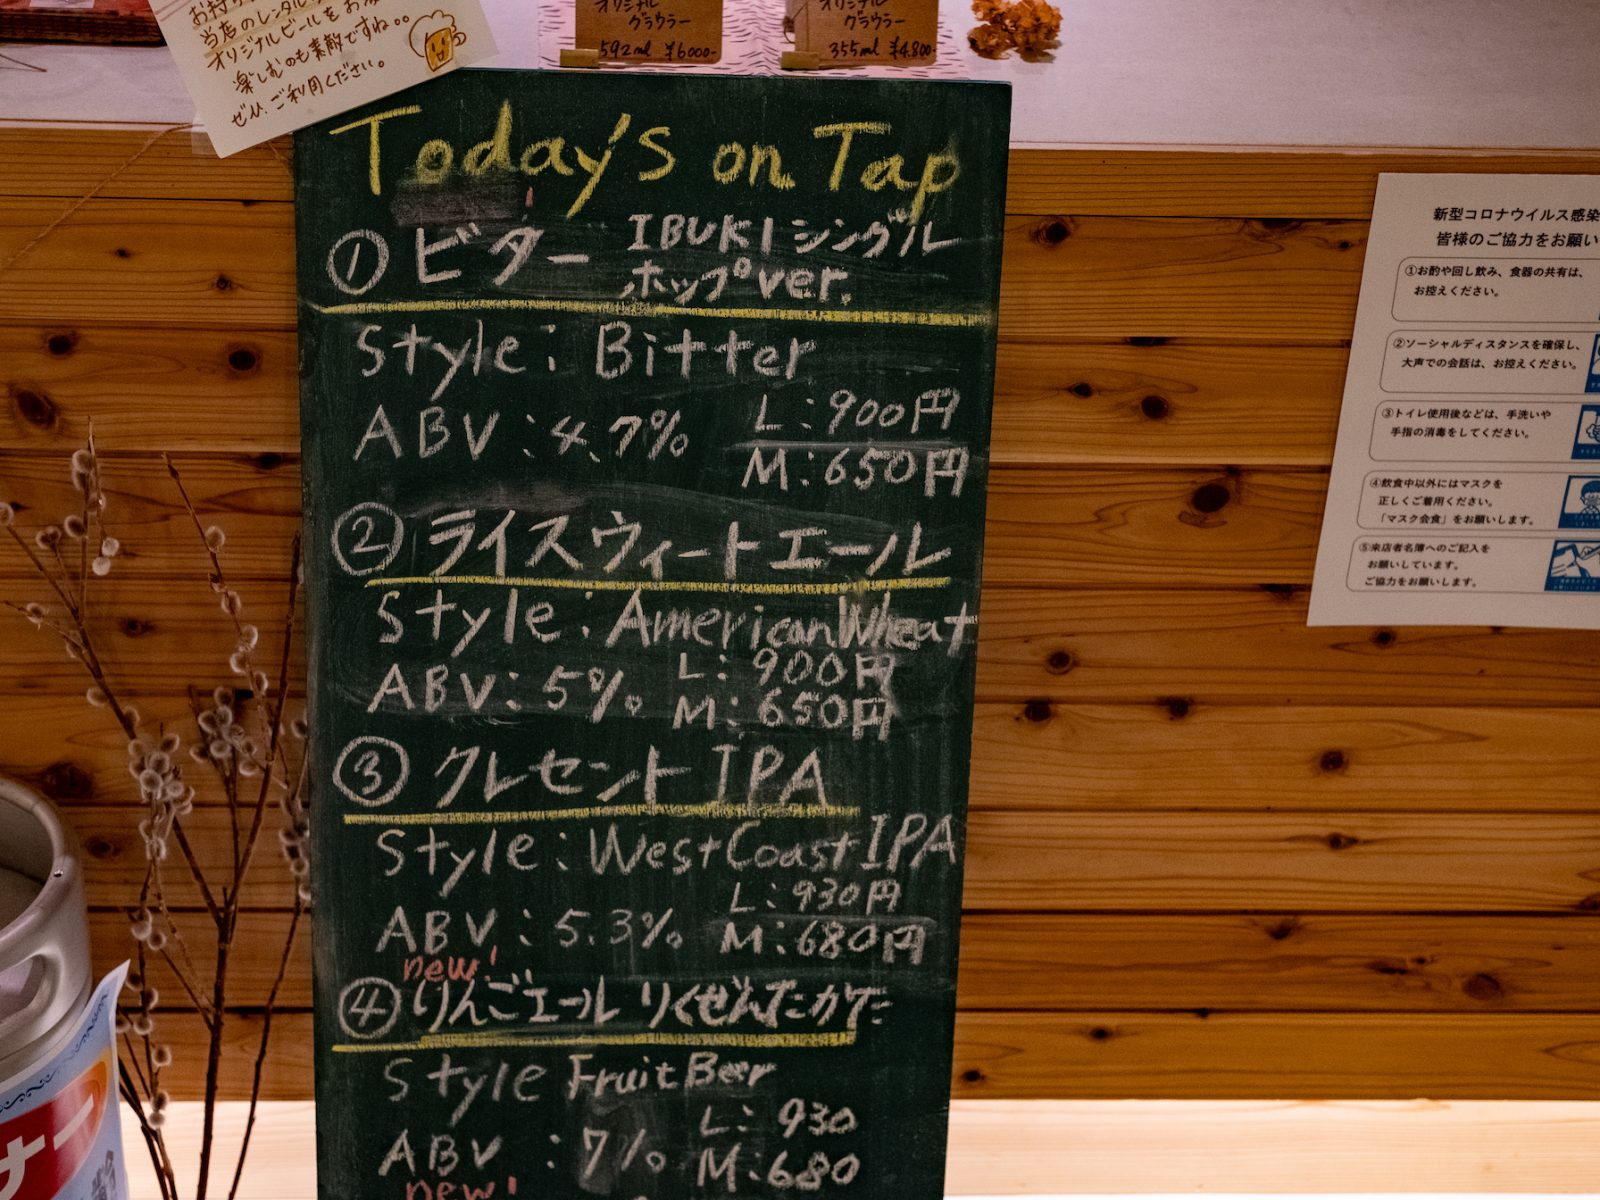 当店のレンタル
オリジナルビールをお
楽しむのも素敵ですね。。
ぜひ、ご利用ください。
オリジナル
グラウラー
592ml ¥6000-
オリジナル
グラウラー
355ml ¥4.800-
Today's on Tap
① ビター IBUKIシングル
ホップver.
Style: Bitter
ABV: 4.7% L: 900円
M: 650円
② ライスウィートエール
Style: American Wheat
ABV: 5% L: 900円
M: 650円
③ クレセント IPA
Style: West Coast IPA
ABV: 5.3% L: 930円
M: 680円
new!
④ りんごエール りくぜんたかた
Style Fruit Beer
ABV : 7% L: 930
M: 680
new!
新型コロナウイルス感染
皆様のご協力をお願い
①お酌や回し飲み、食器の共有は、
お控えください。
②ソーシャルディスタンスを確保し、
大声での会話は、お控えください。
③トイレ使用後などは、手洗いや
手指の消毒をしてください。
④飲食中以外にはマスクを
正しくご着用ください。
「マスク会食」をお願いします。
⑤来店者名簿へのご記入を
お願いしています。
ご協力をお願いします。
ナー